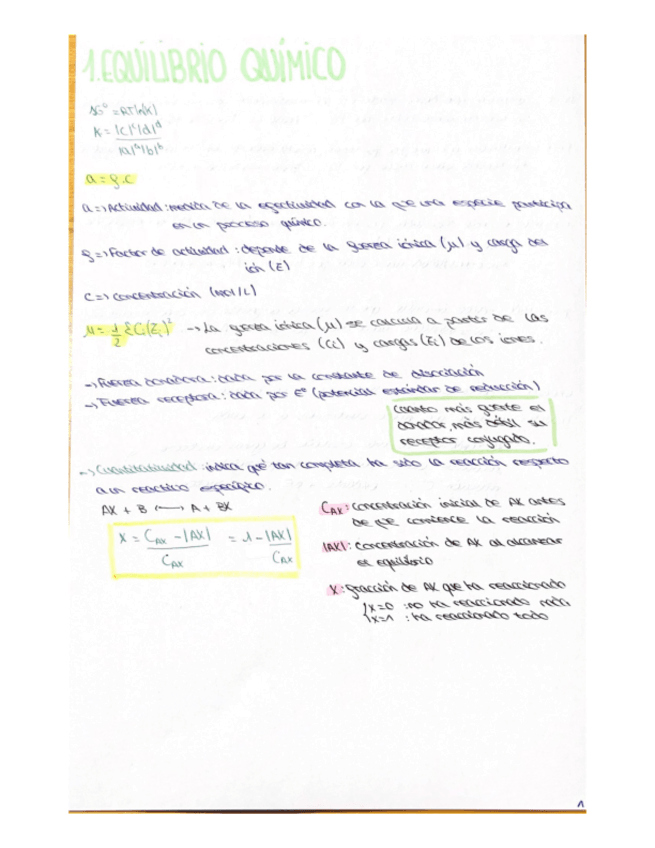 1.EQUILIBRIO QUÍMICO
ΔG° = RTln|K|
K = |C|^c|d|^d
|a|^a|b|^b
a = f·c
a => Actividad: medida de la efectividad con la que una especie participa
en un proceso químico.
f => Factor de actividad: depende de la fuerza iónica (μ) y carga del
ión (Z)
C => concentración (mol/L)
μ = 1/2 Σ Ci(Zi)² → La fuerza iónica (μ) se calcula a partir de las
concentraciones (Ci) y cargas (Zi) de los iones.
→ Fuerza donadora: dada por la constante de disociación
→ Fuerza receptora: dada por E° (potencial estándar de reducción)
cuanto más fuerte el
donador, más débil su
receptor conjugado.
→ Cuantitatividad: indica qué tan completa ha sido la reacción respecto
a un reactivo específico.
AX + B ⟷ A + BX
X = C_AX - |AX| = 1 - |AX|
C_AX C_AX
C_AX: concentración inicial de AX antes
de que comience la reacción
|AX|: concentración de AX al alcanzar
el equilibrio
X: fracción de AX que ha reaccionado
x=0 : no ha reaccionado nada
x=1 : ha reaccionado todo
1